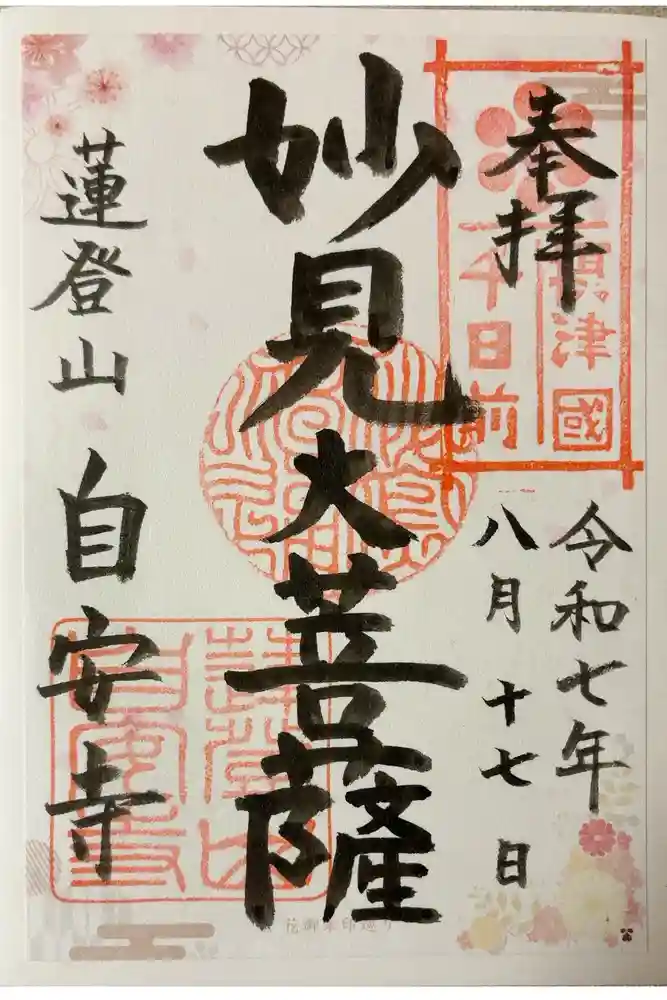 奉拝
摂津國
千日前
令和七年
八月十七日
妙見大菩薩
蓮登山 自安寺